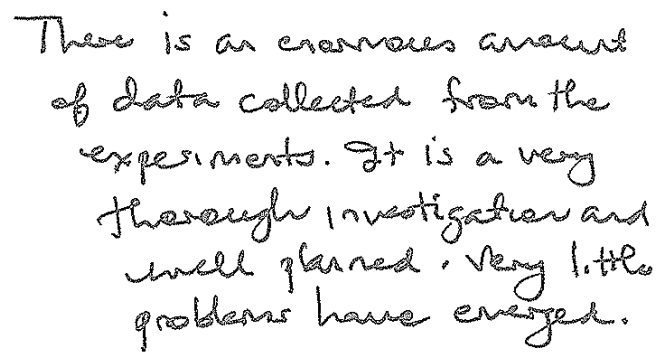 There is an enormous amount
of data collected from the
experiments. It is a very
thorough investigation and
well planned. Very little
problems have emerged.